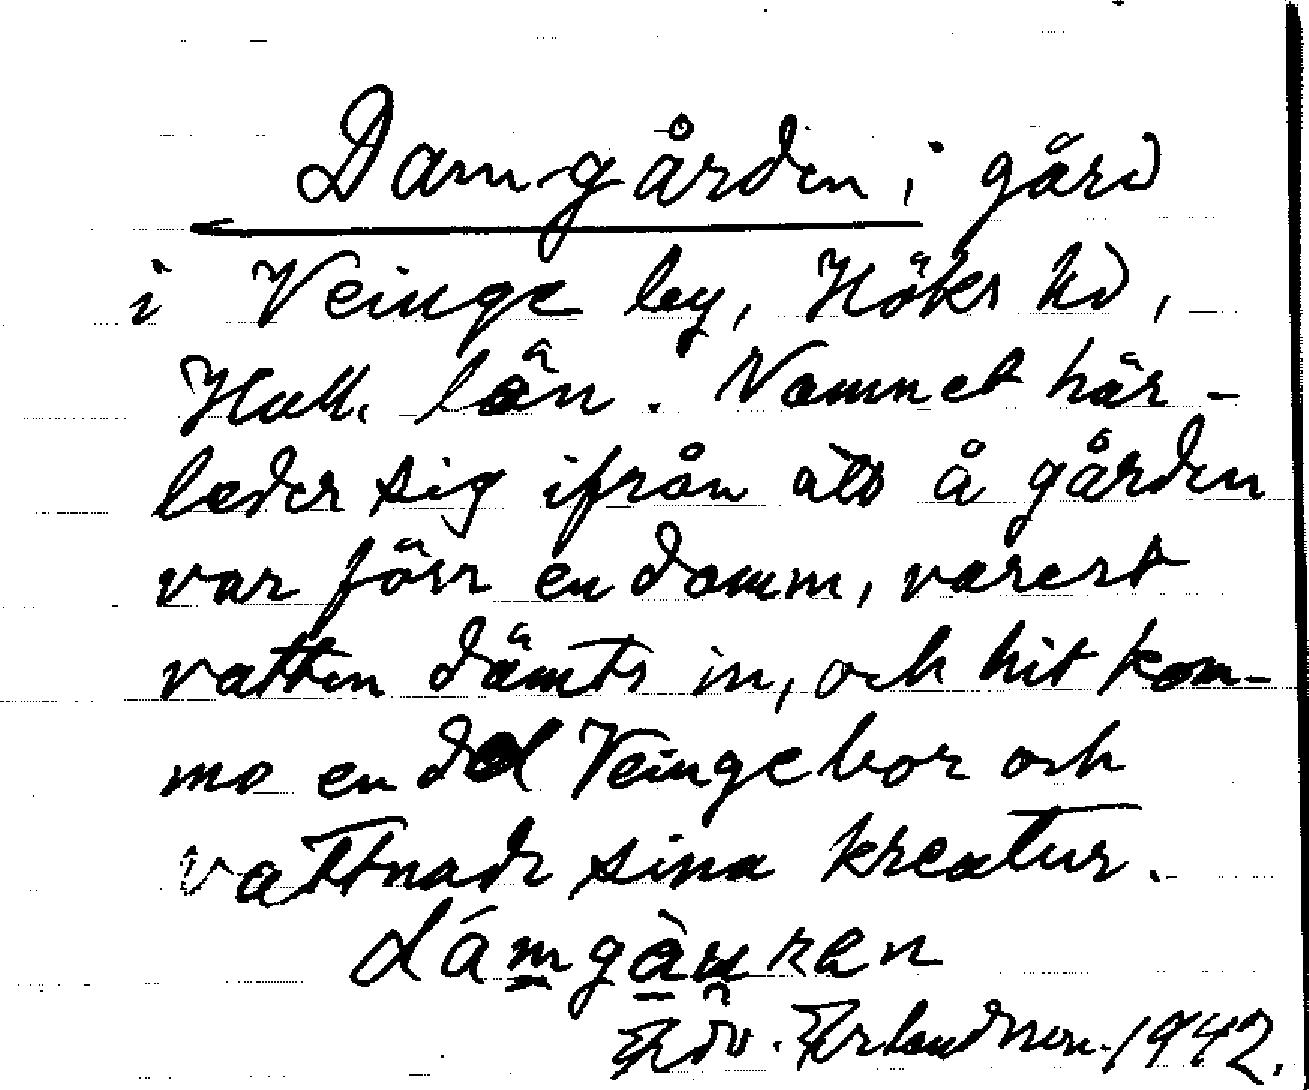 Damgården, gård
i Veinge by, Höks hd,
Hall. län. Namnet här-
leder sig ifrån att å gården
var förr en damm, varest
vatten dämts in, och hit kom-
mo en del Veingebor och
vattnade sina kreatur.
dámgàuʀen
Edv. Erlandsson. 1942.